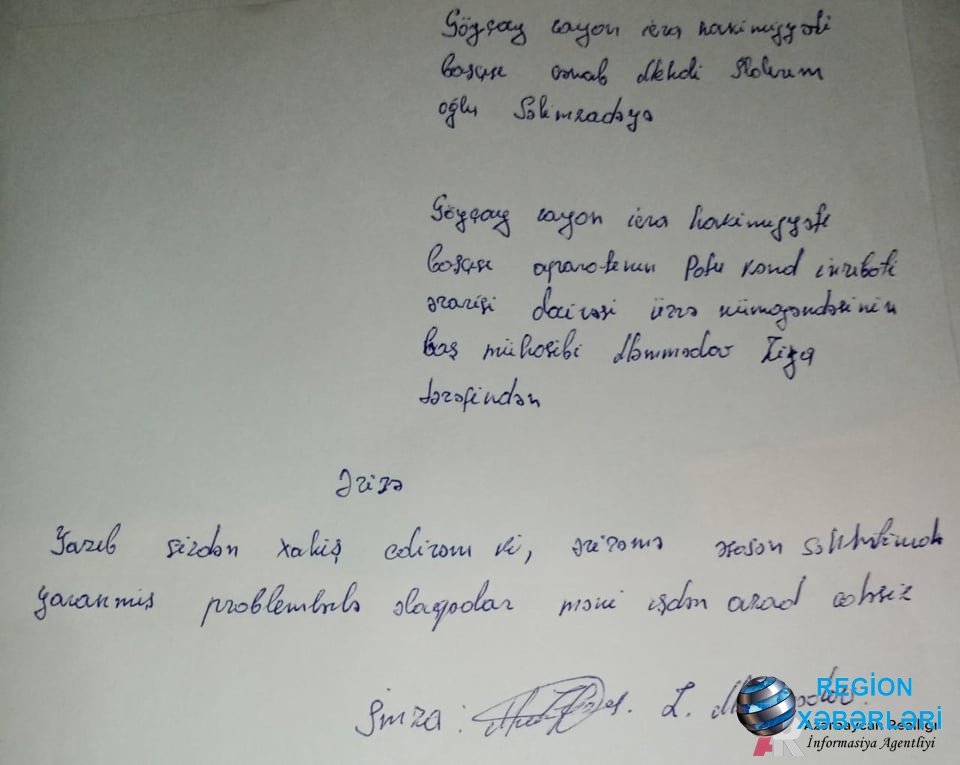 Göyçay rayon icra hakimiyyəti
başçısı cənab Mehdi
oğlu Səlimzadəyə
Göyçay rayon icra hakimiyyəti
başçısı aparatının Potu kənd inzibati
ərazisi dairəsi üzrə nümayəndəsinin
baş mühasibi Məmmədov
tərəfindən
Ərizə
Yazıb sizdən xahiş edirəm ki, ərizəmə əsasən
yaranmış problemlərlə əlaqədar məni işdən azad edəsiz
İmza:
REGİON
XƏBƏRLƏRİ
Azərbaycan Reallığı
İnformasiya Agentliyi